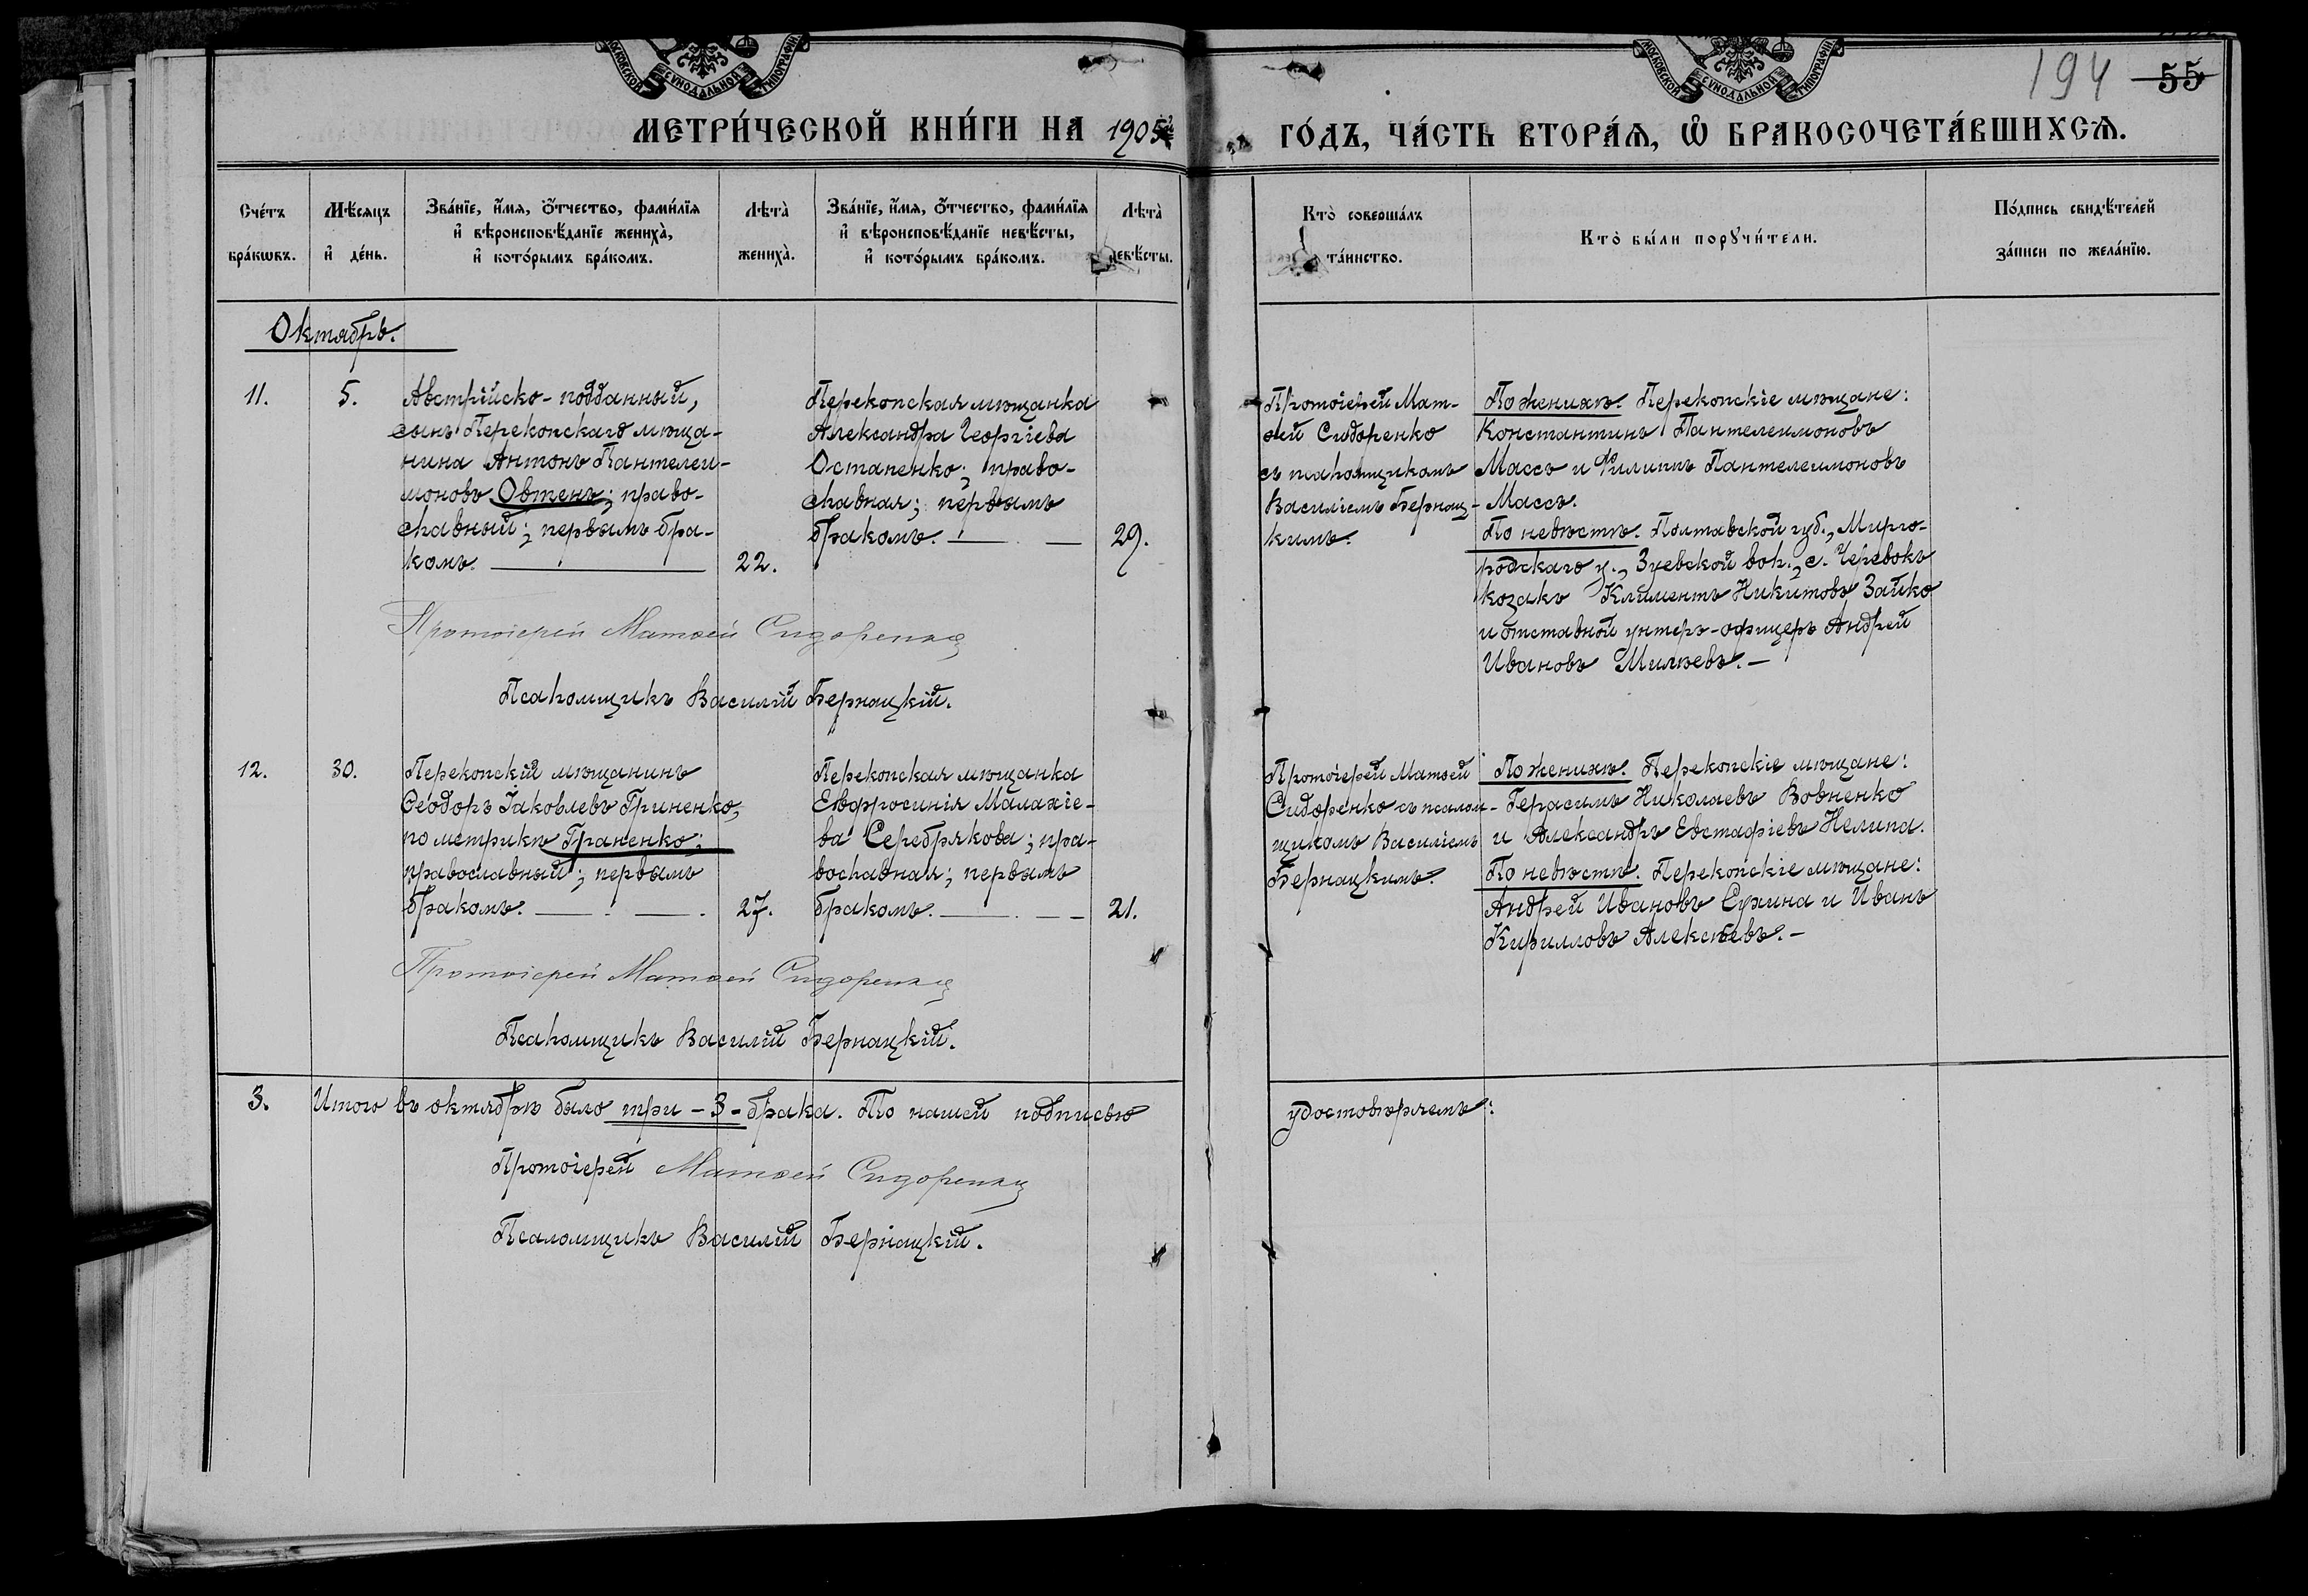 МОСКОВСКОЙ СУНОДАЛЬНОЙ ТИПОГРАФІИ
МОСКОВСКОЙ СУНОДАЛЬНОЙ ТИПОГРАФІИ
194 55
МЕТРИ́ЧЕСКОЙ КНИ́ГИ НА 1905й
ГО́ДЪ, ЧА́СТЬ ВТОРА́Ѧ, Ѡ҆ БРАКОСОЧЕТА́ВШИХСѦ.
Сче́тъ бра́кωвъ.
Мѣ́сяцъ и҆ де́нь.
Зва́нїе, и҆́мя, ѻ҆́тчество, фами́лїя
и҆ вѣроисповѣ́данїе жениха̀,
и҆ кото́рымъ бра́комъ.
Лѣта̀ жениха̀.
Зва́нїе, и҆́мя, ѻ҆́тчество, фами́лїя
и҆ вѣроисповѣ́данїе невѣ́сты,
и҆ кото́рымъ бра́комъ.
Лѣта̀ невѣ́сты.
Кто̀ соверша́лъ та́инство.
Кто̀ бы́ли порꙋчи́тели.
По́дпись свидѣ́телей за́писи по жела́нїю.
Октябрь.
11. 5.
Австрійско-подданный,
сынъ Перекопскаго мѣща-
нина Антонъ Пантелеи-
моновъ Овтенъ; право-
славный; первымъ бра-
комъ. 22.
Перекопская мѣщанка
Александра Георгіева
Остапенко; право-
славная; первымъ
бракомъ. 29.
Протоіерей Мат-
ѳей Сидоренко
съ псаломщикомъ
Василіемъ Бернац-
кимъ.
По женихѣ. Перекопскіе мѣщане:
Константинъ Пантелеимоновъ
Массъ и Филиппъ Пантелеимоновъ
Массъ.
По невѣстѣ. Полтавской губ., Мирго-
родскаго у., Зуевской вол., с. Черевокъ
козакъ Климентъ Никитовъ Зайко
и отставной унтеръ-офицеръ Андрей
Ивановъ Милѣевъ.
Протоіерей Матѳей Сидоренко
Псаломщикъ Василій Бернацкій.
12. 30.
Перекопскій мѣщанинъ
Ѳеодоръ Іаковлевъ Гриненко,
по метрикѣ Граненко;
православный; первымъ
бракомъ. 27.
Перекопская мѣщанка
Евфросинія Малахіе-
ва Серебрякова; пра-
вославная; первымъ
бракомъ. 21.
Протоіерей Матѳей
Сидоренко съ псалом-
щикомъ Василіемъ
Бернацкимъ.
По женихѣ. Перекопскіе мѣщане:
Герасимъ Николаевъ Вовненко
и Александръ Евстафіевъ Нелипа.
По невѣстѣ. Перекопскіе мѣщане:
Андрей Ивановъ Сухина и Иванъ
Кирилловъ Алексѣевъ.
Протоіерей Матѳей Сидоренко
Псаломщикъ Василій Бернацкій.
3. Итого въ октябрѣ было три - 3 - брака. По нашей подписью
удостовѣряемъ:
Протоіерей Матѳей Сидоренко
Псаломщикъ Василій Бернацкій.